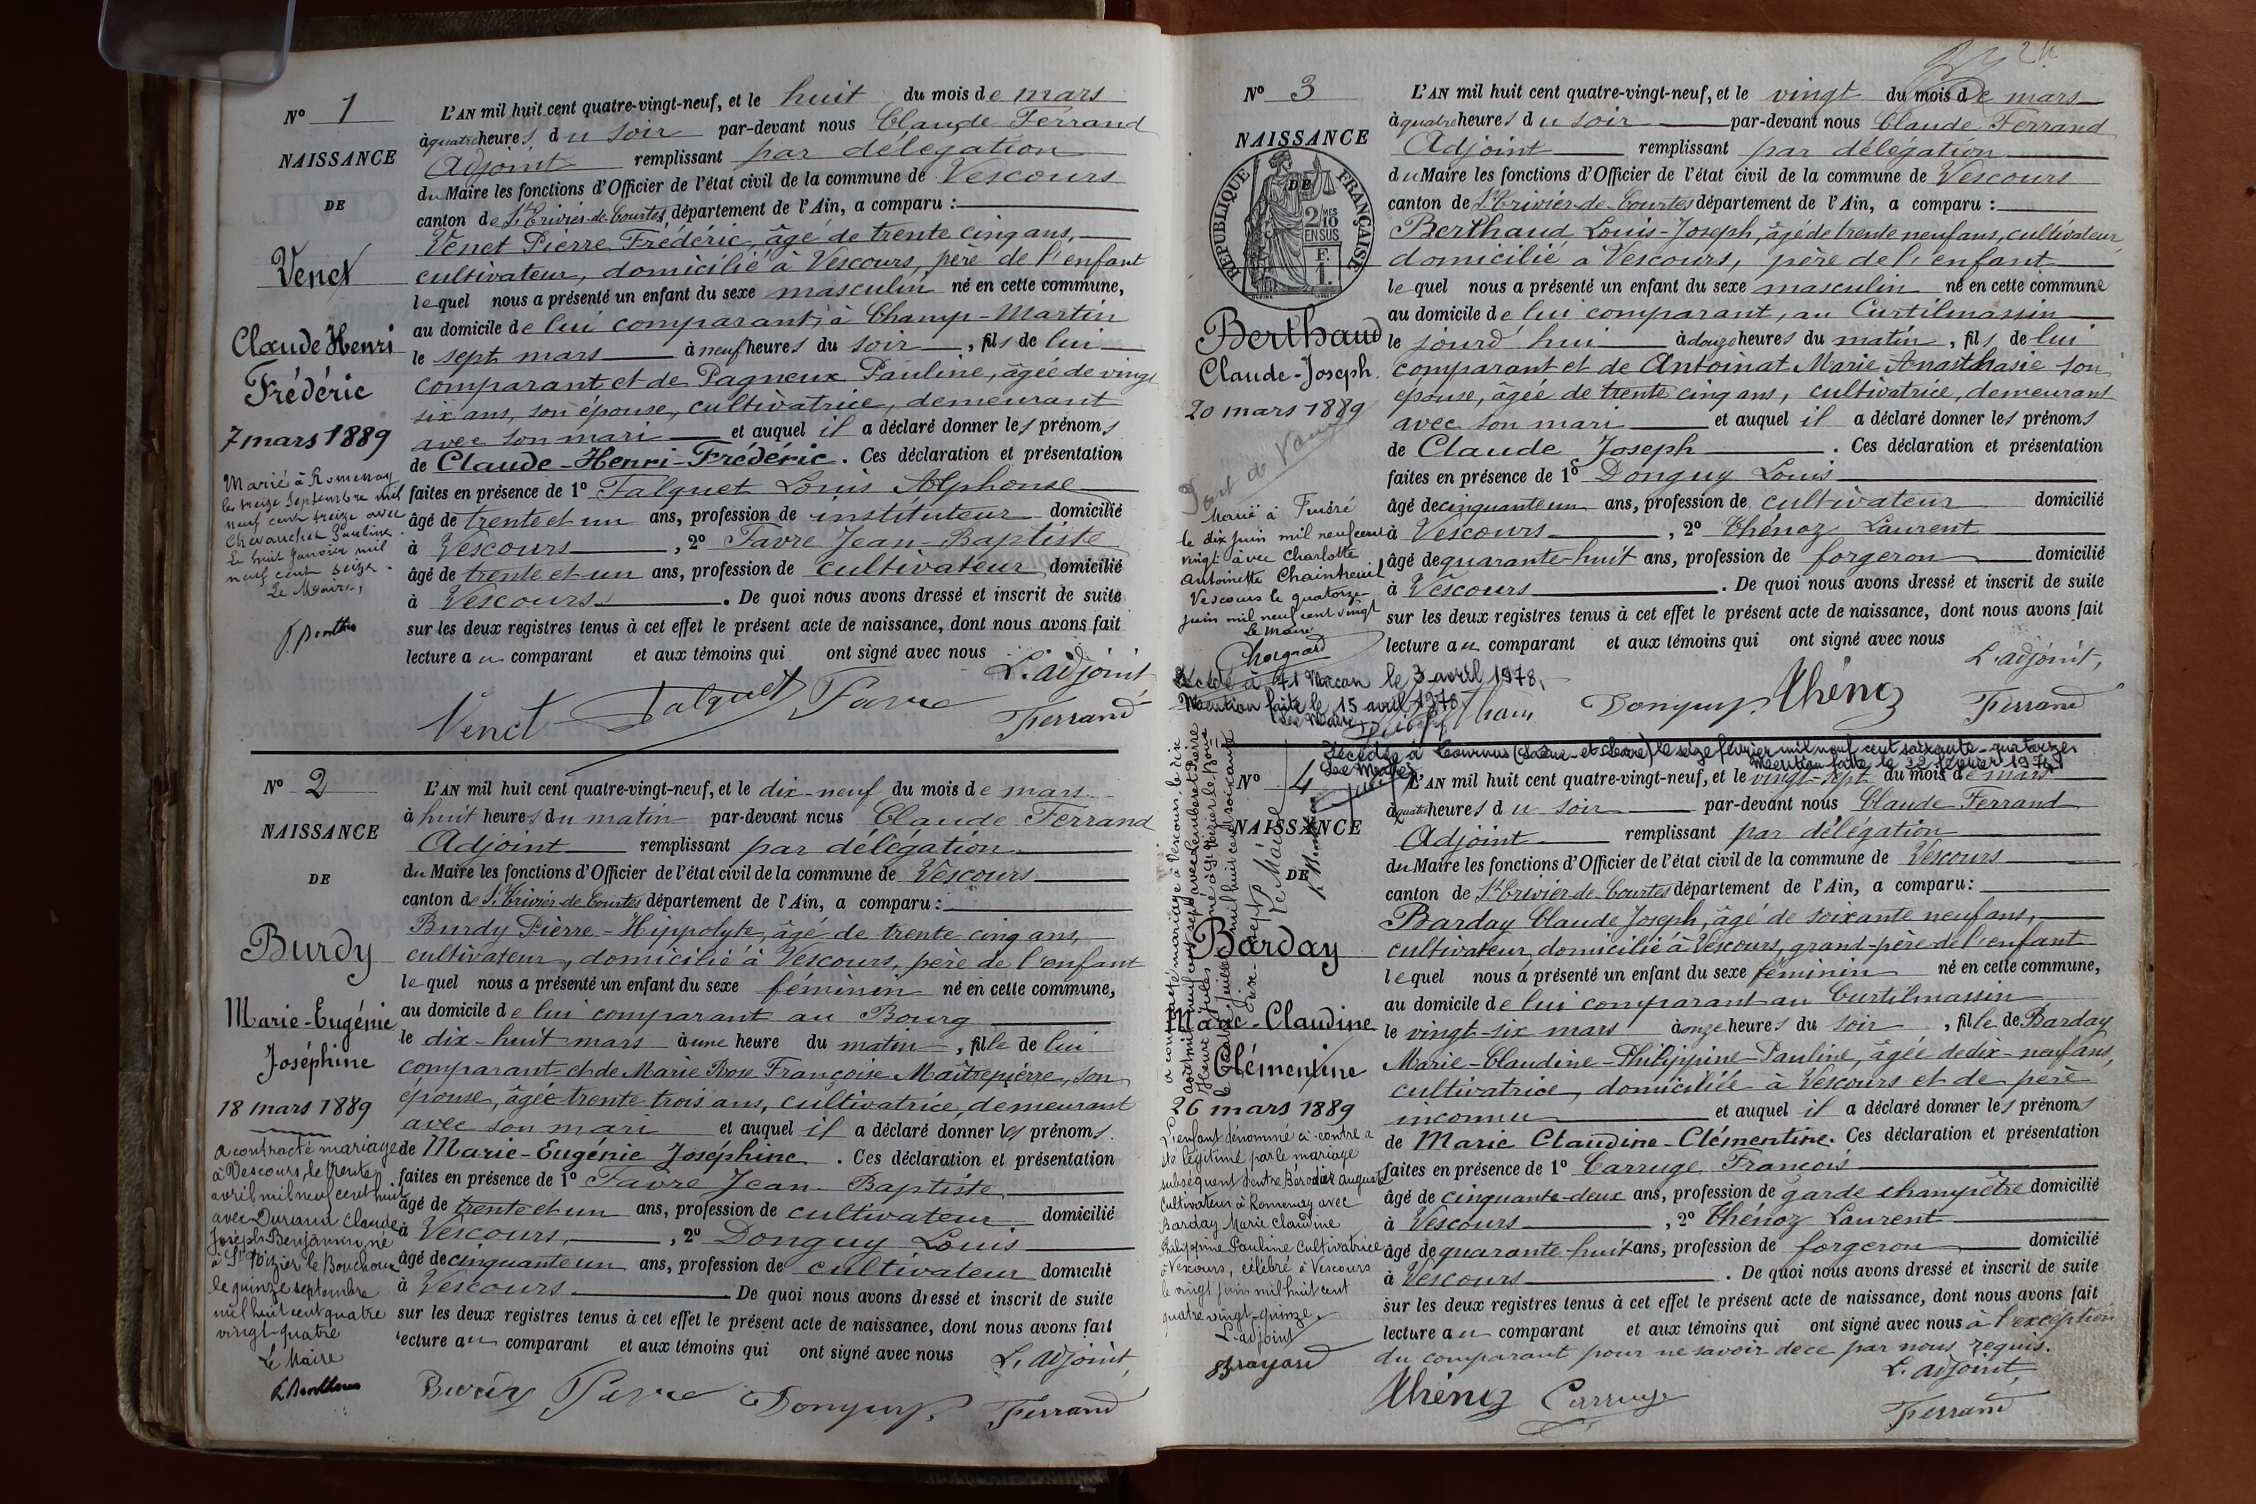 N° 1
NAISSANCE
DE
Venet
Claude Henri
Frédéric
7 mars 1889
Marié à Romenay
le treize Septembre mil
neuf cent treize avec
Chevauchet Pauline
Le huit Janvier mil
neuf cent seize.
Le Maire,
L'AN mil huit cent quatre-vingt-neuf, et le huit du mois de mars
à quatre heures du soir par-devant nous Claude Ferrand
Adjoint remplissant par délégation
du Maire les fonctions d'Officier de l'état civil de la commune de Vescours
canton de St Trivier-de-Courtes département de l'Ain, a comparu :
Venet Pierre Frédéric, âgé de trente cinq ans,
cultivateur, domicilié à Vescours, père de l'enfant
lequel nous a présenté un enfant du sexe masculin né en cette commune,
au domicile de lui comparant, à Champ-Martin
le sept mars à neuf heures du soir, fils de lui
comparant et de Pagneux Pauline, âgée de vingt
six ans, son épouse, cultivatrice, demeurant
avec son mari et auquel il a déclaré donner les prénoms
de Claude-Henri-Frédéric. Ces déclaration et présentation
faites en présence de 1° Falquet Louis Alphonse
âgé de trente et un ans, profession de instituteur domicilié
à Vescours, 2° Favre Jean-Baptiste
âgé de trente et un ans, profession de cultivateur domicilié
à Vescours. De quoi nous avons dressé et inscrit de suite
sur les deux registres tenus à cet effet le présent acte de naissance, dont nous avons fait
lecture au comparant et aux témoins qui ont signé avec nous
L'adjoint
Venet Falquet Favre Ferrand
N° 2
NAISSANCE
DE
Burdy
Marie-Eugénie
Joséphine
18 mars 1889
a contracté mariage
à Vescours, le trente
avril mil neuf cent huit
avec Durand Claude
Joseph Benjamin, né
à St Nizier le Bouchoux
le quinze septembre
mil huit cent quatre
vingt-quatre
Le Maire
L'AN mil huit cent quatre-vingt-neuf, et le dix-neuf du mois de mars
à huit heures du matin par-devant nous Claude Ferrand
Adjoint remplissant par délégation
du Maire les fonctions d'Officier de l'état civil de la commune de Vescours
canton de St Trivier-de-Courtes département de l'Ain, a comparu :
Burdy Pierre-Hippolyte, âgé de trente cinq ans,
cultivateur, domicilié à Vescours, père de l'enfant
lequel nous a présenté un enfant du sexe féminin né en cette commune,
au domicile de lui comparant au Bourg
le dix-huit mars à une heure du matin, fille de lui
comparant et de Marie Rose Françoise Maîtrepierre, son
épouse, âgée trente trois ans, cultivatrice, demeurant
avec son mari et auquel il a déclaré donner les prénoms
de Marie-Eugénie Joséphine. Ces déclaration et présentation
faites en présence de 1° Favre Jean-Baptiste
âgé de trente et un ans, profession de cultivateur domicilié
à Vescours, 2° Donguy Louis
âgé de cinquante un ans, profession de cultivateur domicilié
à Vescours De quoi nous avons dressé et inscrit de suite
sur les deux registres tenus à cet effet le présent acte de naissance, dont nous avons fait
lecture au comparant et aux témoins qui ont signé avec nous
L'adjoint,
Burdy Favre Donguy Ferrand
N° 3
NAISSANCE
DE
RÉPUBLIQUE FRANÇAISE
2/10 MES
EN SUS
Berthaud
Claude-Joseph
20 mars 1889
Pont de Vaux
Marié à Tuséré
le dix juin mil neuf cent
vingt avec Charlotte
Antoinette Chaintreuil
Vescours le quatorze
juin mil neuf cent vingt
Le Maire
Décédé à 71 Macon le 3 avril 1978.
Mention faite le 15 avril 1978.
Le Maire,
L'AN mil huit cent quatre-vingt-neuf, et le vingt du mois de mars
à quatre heures du soir par-devant nous Claude Ferrand
Adjoint remplissant par délégation
du Maire les fonctions d'Officier de l'état civil de la commune de Vescours
canton de St Trivier-de-Courtes département de l'Ain, a comparu :
Berthaud Louis-Joseph, âgé de trente neuf ans, cultivateur
domicilié à Vescours, père de l'enfant
lequel nous a présenté un enfant du sexe masculin né en cette commune
au domicile de lui comparant, au Curtilmassin
le jourd'hui à douze heures du matin, fils de lui
comparant et de Antoinat Marie Anasthasie son
épouse, âgée de trente cinq ans, cultivatrice, demeurant
avec son mari et auquel il a déclaré donner les prénoms
de Claude Joseph. Ces déclaration et présentation
faites en présence de 1° Donguy Louis
âgé de cinquante un ans, profession de cultivateur domicilié
à Vescours, 2° Thénoz Laurent
âgé de quarante-huit ans, profession de forgeron domicilié
à Vescours. De quoi nous avons dressé et inscrit de suite
sur les deux registres tenus à cet effet le présent acte de naissance, dont nous avons fait
lecture au comparant et aux témoins qui ont signé avec nous
L'adjoint,
Donguy Thénoz Ferrand
Décédée à Tournus (Saône-et-Loire) le seize février mil neuf cent soixante-quatorze
Mention faite le 22 février 1974
Le Maire,
N° 4
NAISSANCE
DE
Barday
Marie-Claudine
Clémentine
26 mars 1889
L'enfant dénommé ci-contre a
été légitimé par le mariage
subséquent d'entre Bérodier Auguste
Cultivateur à Romenay avec
Barday Marie Claudine
Philippine Pauline Cultivatrice
à Vescours, célébré à Vescours
le vingt juin mil huit cent
quatre vingt-quinze.
L'adjoint
Brayard
L'AN mil huit cent quatre-vingt-neuf, et le vingt-sept du mois de mars
à quatre heures du soir par-devant nous Claude Ferrand
Adjoint remplissant par délégation
du Maire les fonctions d'Officier de l'état civil de la commune de Vescours
canton de St Trivier-de-Courtes département de l'Ain, a comparu :
Barday Claude Joseph, âgé de soixante neuf ans,
cultivateur, domicilié à Vescours, grand-père de l'enfant
lequel nous a présenté un enfant du sexe féminin né en cette commune,
au domicile de lui comparant au Curtilmassin
le vingt-six mars à onze heures du soir, fille de Barday
Marie-Claudine-Philippine-Pauline, âgée de dix-neuf ans,
cultivatrice, domiciliée à Vescours et de père
inconnu et auquel il a déclaré donner les prénoms
de Marie Claudine-Clémentine. Ces déclaration et présentation
faites en présence de 1° Carruge François
âgé de cinquante-deux ans, profession de garde champêtre domicilié
à Vescours, 2° Thénoz Laurent
âgé de quarante-huit ans, profession de forgeron domicilié
à Vescours. De quoi nous avons dressé et inscrit de suite
sur les deux registres tenus à cet effet le présent acte de naissance, dont nous avons fait
lecture au comparant et aux témoins qui ont signé avec nous à l'exception
du comparant pour ne savoir de ce par nous requis.
L'adjoint,
Thénoz Carruge Ferrand